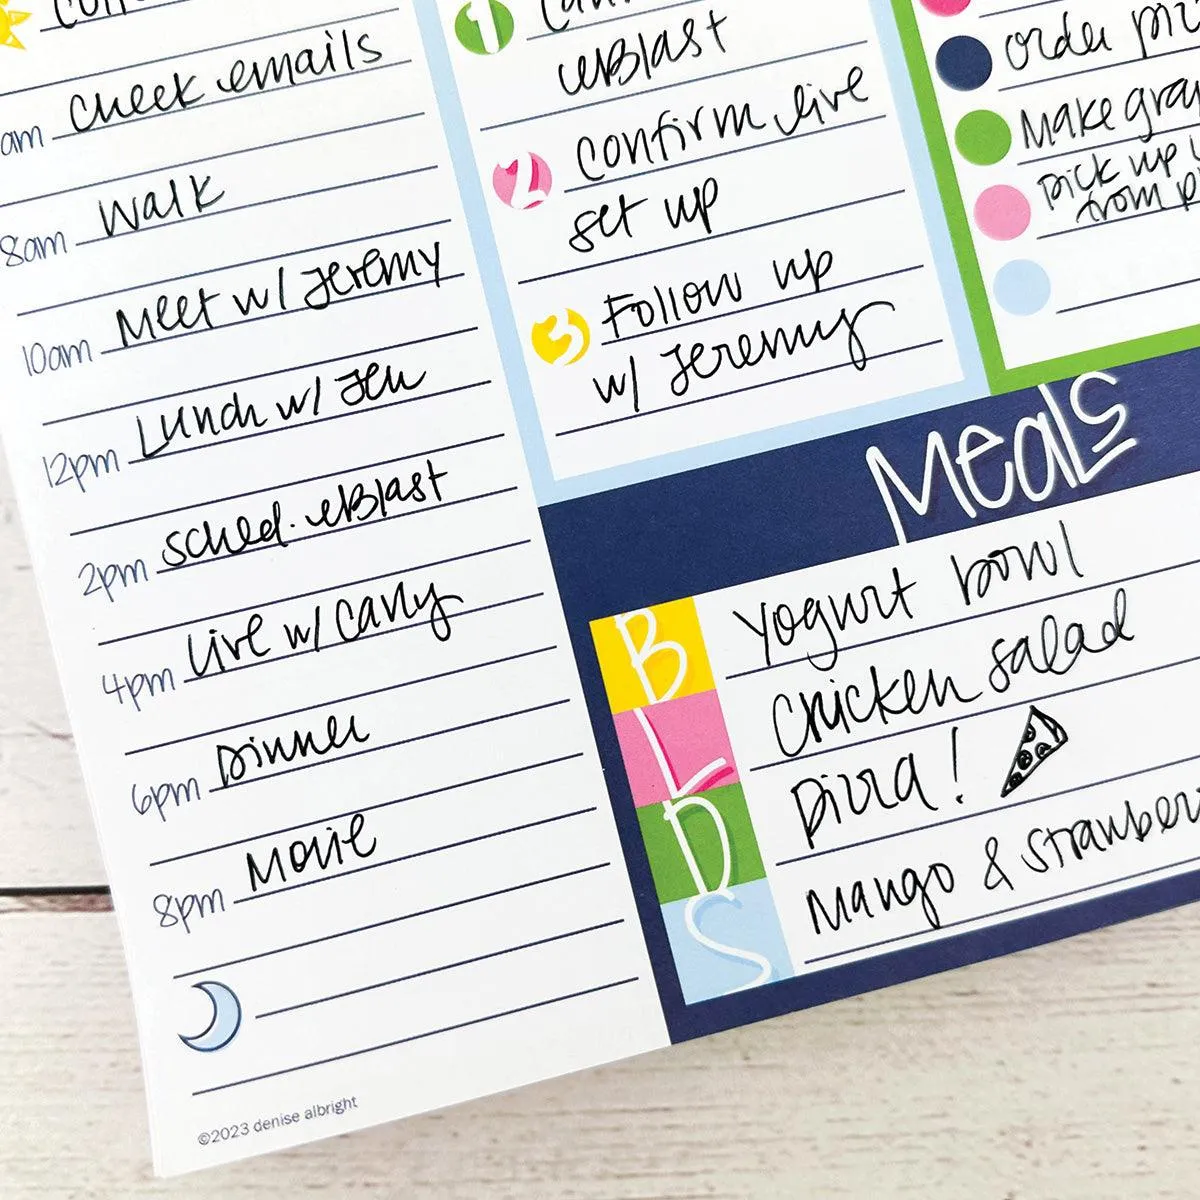 am check emails
walk
8am
Meet w/ Jeremy
10am
Lunch w/ Jen
12pm
sched. eBlast
2pm
Live w/ Carly
4pm
Dinner
6pm
Movie
8pm
©2023 denise albright
1
eBlast
2 Confirm live
set up
3 Follow up
w/ Jeremy
order
Make
pick up
from
Meals
B Yogurt bowl
L Chicken salad
D Pizza!
S Mango &